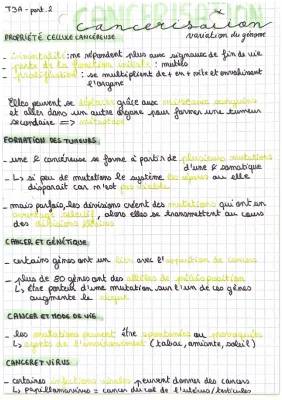 T3A - part. 2
CANCERISATION
cancerisation
variation du génome
PROPRIÉTÉ CELLULE CANCÉREUSE
- immortalité : ne répondent plus aux signaux de fin de vie
- perte de la fonction initiale : mutées
- prolifération : se multiplient de + en + vite et envahissent
l'organe
Elles peuvent se déplacer grâce aux vaisseaux sanguins
et aller dans un autre organe pour former une tumeur
secondaire => métastase
FORMATION DES TUMEURS
- une ¢ cancéreuse se forme à partir de plusieurs mutations
d'une ¢ somatique
↳ si peu de mutations le système les répare ou elle
disparaît car n'est pas viable
- mais parfois, les divisions créent des mutations qui ont un
avantage sélectif, alors elles se transmettent au cours
des divisions
CANCER ET GÉNÉTIQUE
- certains gènes ont un lien avec l'apparition de cancers
- plus de 80 gènes ont des allèles de prédisposition
↳ être porteur d'une mutation sur l'un de ces gènes
augmente le risque
CANCER ET MODE DE VIE
- les mutations peuvent être spontanées ou provoquées
↳ agents de l'environnement (tabac, amiante, soleil)
CANCER ET VIRUS
- certaines infections virales peuvent donner des cancers
↳ papillomavirus = cancer du col de l'utérus / testicules